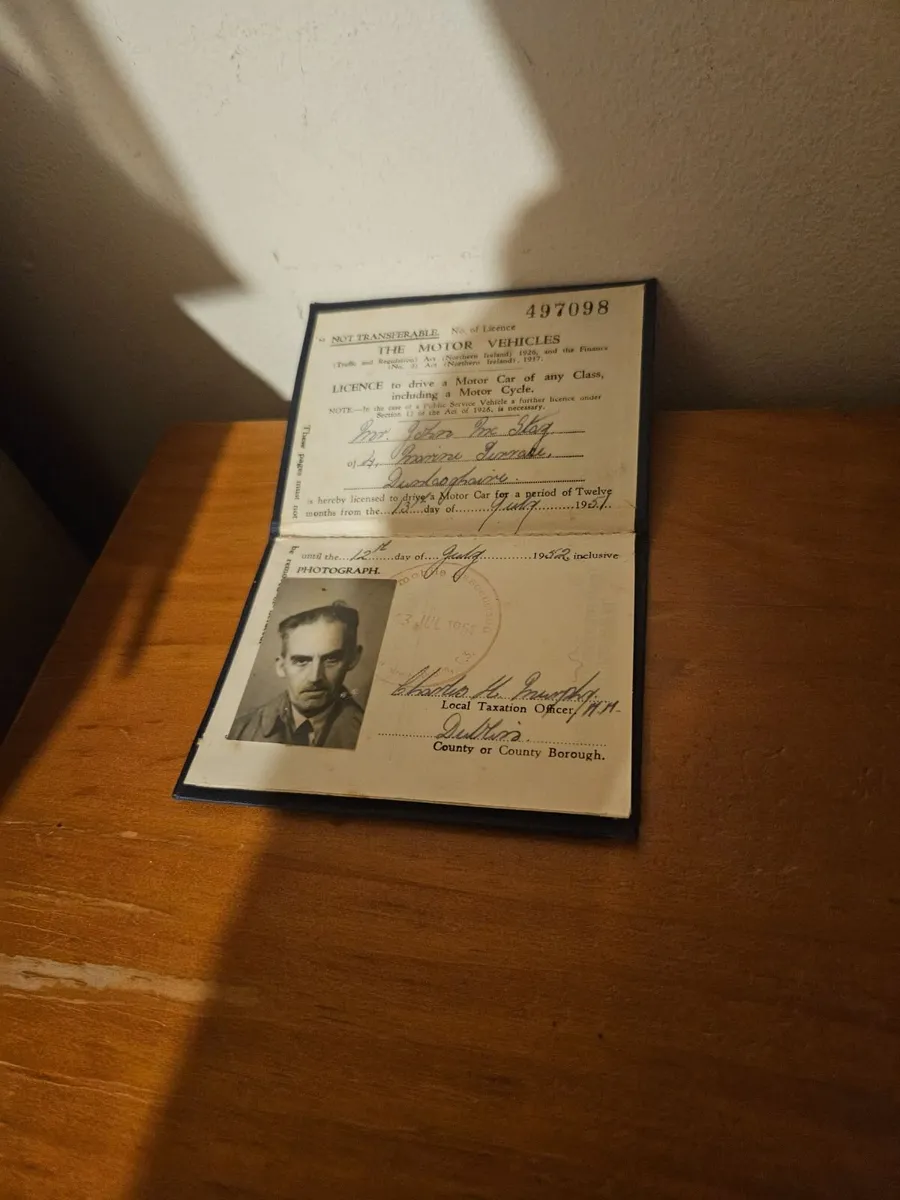 497098
" NOT TRANSFERABLE. No. of Licence
THE MOTOR VEHICLES
(Traffic and Regulation) Act (Northern Ireland) 1926, and the Finance
(No. 2) Act (Northern Ireland), 1937.
LICENCE to drive a Motor Car of any Class,
including a Motor Cycle.
NOTE.—In the case of a Public Service Vehicle a further licence under
Section 12 to the Act of 1926, is necessary.
Mr. John Mc
of 4, Marine Terrace,
Dunlaoghaire.
is hereby licensed to drive a Motor Car for a period of Twelve
months from the 13th day of July 1951.
These pages must not
until the 12th day of July 1952 inclusive
PHOTOGRAPH.
JUL
Charles H. Murphy
Local Taxation Officer.
Dublin.
County or County Borough.